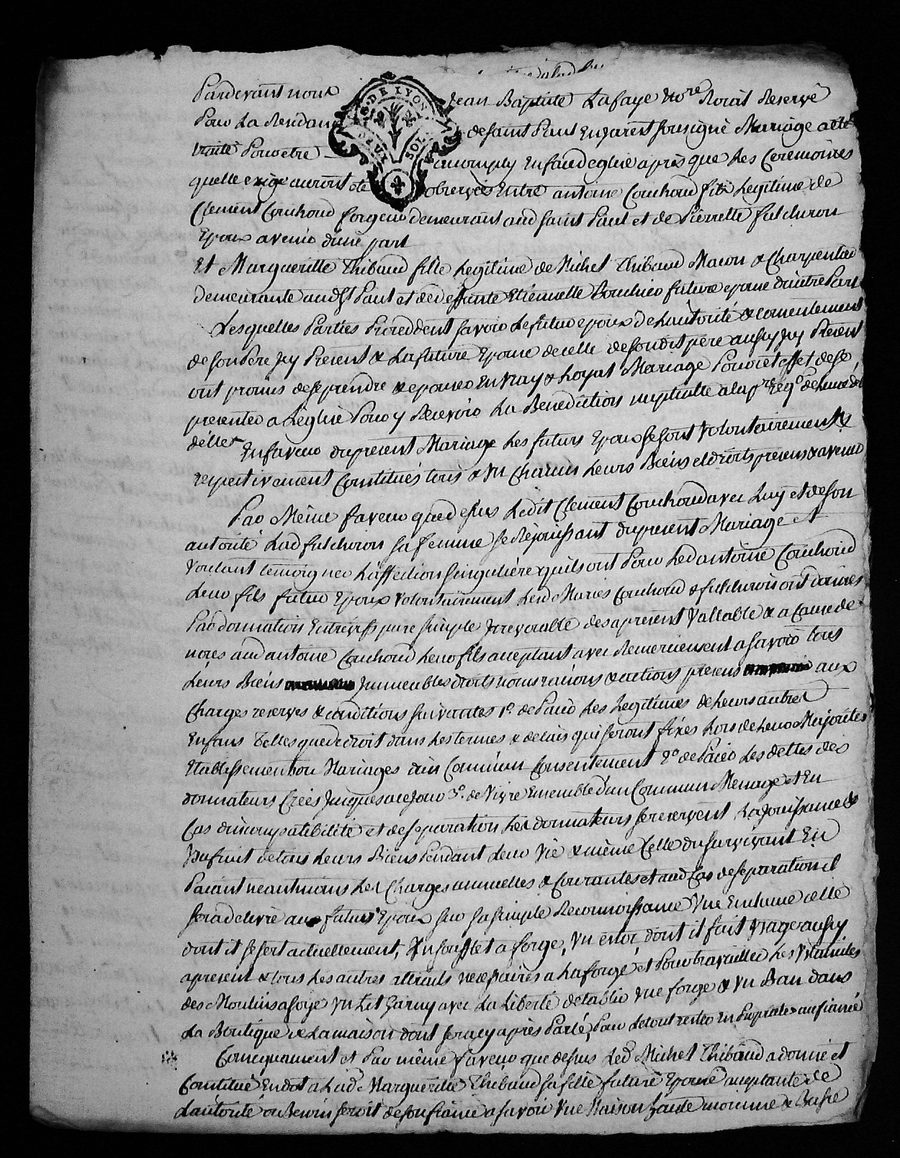 Pardevant nous Jean Baptiste Lafaye no.re Roial Reservé
G. DE LYON
DEUX SOLS
Pour La Residance de Saint Paul Enjarest soussigné Mariage a été
traité Pour être accomply En face d'eglise après que Les Ceremoires
quelle exige auront été observées Entre antoine Couhoud fils Legitime de
Clement Couhoud forgeur demeurans aud Saint Paul et de Pierrette fulchiron
Epoux avenir d'une part
Et Margueritte Thibaud fille Legitime de Michel Thibaud Macon & Charpentier
demeurante aud St Paul et de deffunte Etiennette Bouchéo future epouse d'autre Part
Lesquelles Parties Procedant savoir Le futur epoux de L'autorité & consentement
de son Pere Icy Présent & La future Epouse de celle de son dit père aussy Icy Présent
ont promis de se prendre & epouser En vray & Loyal Mariage Pour cet effet de se
presenter a L'eglise Pour y Recevoir La Benediction nuptialle a la pre Req.on de L'un
d'elles Enfaveur du present Mariage Les futurs Epoux se sont volontairement &
respectivement Constitués tous & un Chacun Leurs Biens et droits presens & avenir
Par Même faveur que dessus Ledit Clement Couhoud avec Luy et de son
autorité Lad fulchiron sa femme se Rejouissant du present Mariage et
Voulant temoigner L'affection singuliere quils ont Pour Led antoine Couhoud
Leur fils futur Epoux volontairement Lesd Mariés Couhoud & fulchiron ont donnés
Par donnation Entrevifs pure simple Irrevocable des apresent Vallable & a Cause de
noces aud antoine Couhoud Leur fils acceptant avec Remerciement a savoir tous
Leurs Biens Immeubles droits noms raisons & actions presens aux
Charges reserves & conditions suivantes 1.o de Paier Les Legitimes de Leurs autres
Enfans telles que de droit dans Les termes & delais qui seront fixés Lors de Leur Majorités
Etablissement ou Mariages d'un Commun Consentement 2.o de Paier Les dettes des
donnateurs Crées Jusques a ce Jour 3.o de Vivre Ensemble d'un Commun Menage et En
Cas d'incompatibilité et de separation, Lesd donnateurs se reservent La Jouissance &
Usufruit de tous Leurs Biens Pendant Leur Vie & même Celle du survivant En
Paiant neantmoins Les Charges annuelles & Courantes et aud Cas de separation il
sera delivré au futur Epoux sur sa simple Reconnoissance Une Enclume celle
dont il se sert actuellement, Un soufflet a forge, un etot dont il fait usage aussy
apresent & tous Les autres attraits necessaires a La forge et Pour travailler Les Ustanciles
des Moulins a soye un Lit Garny avec La Liberté d'etablir une forge & un Ban dans
La Boutique de La maison dont sera cy après Parlé, Pour de tout rester En Proprieté au fiancé
Consequament et Par même faveur que dessus Led Michel Thibaud a donné et
Constitué En dot a Lad Margueritte Thibaud sa fille future Epouse acceptante de
L'autorité ou Bewin seroit de son fiancé a savoir Une Maison haute moienne & Basse